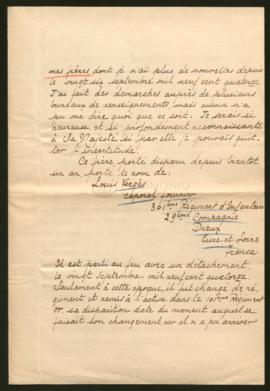 mes frères dont je n'ai plus de nouvelles depuis
le vingt six septembre mil neuf cent quatorze
J'ai fait des démarches auprès de plusieurs
bureaux de renseignements mais aucun n'a
pu me dire quoi que ce soit. Je serais si
heureuse et si profondément reconnaissante
à la Majesté si par elle je pouvais quit-
ter l'incertitude!
Ce frère porté disparu depuis bientôt
un an porte le nom de:
Louis Vergès
caporal fourrier
301ème Régiment d'Infanterie
29ème Compagnie
Dreux
Eure et Loire
France
Il est parti au feu avec un détachement
le vingt Septembre mil neuf cent quatorze
Seulement à cette époque, il fut changé de ré-
giment et remis à l'active dans le 101ème Régiment
or sa disposition date du moment auquel se
faisait son changement car il n'a pu arriver